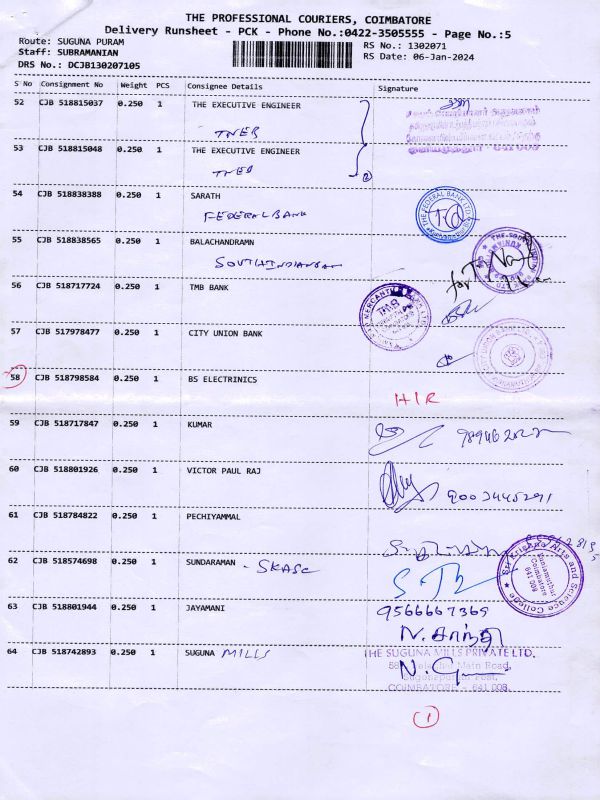 THE PROFESSIONAL COURIERS, COIMBATORE
Delivery Runsheet - PCK - Phone No.:0422-3505555 - Page No.:5
Route: SUGUNA PURAM
Staff: SUBRAMANIAN
RS No.: 1302071
DRS No.: DCJB130207105
RS Date: 06-Jan-2024
S No Consignment No Weight PCS Consignee Details Signature
52 CJB 518815037 0.250 1 THE EXECUTIVE ENGINEER
TNEB
641 008
53 CJB 518815048 0.250 1 THE EXECUTIVE ENGINEER
TNEB
2
54 CJB 518838388 0.250 1 SARATH
FEDERAL BANK
THE FEDERAL BANK LTD
55 CJB 518838565 0.250 1 BALACHANDRAMN
SOUTH INDIAN BANK
for
56 CJB 518717724 0.250 1 TMB BANK
TMB
57 CJB 517978477 0.250 1 CITY UNION BANK
58 CJB 518798584 0.250 1 BS ELECTRINICS
59 CJB 518717847 0.250 1 KUMAR
60 CJB 518801926 0.250 1 VICTOR PAUL RAJ
9003445291
61 CJB 518784822 0.250 1 PECHIYAMMAL
62 CJB 518574698 0.250 1 SUNDARAMAN - SKASC
Sri Krishna Arts and Science College
Kuniamuthur
Coimbatore
641 008
63 CJB 518801944 0.250 1 JAYAMANI 9566667369
N. சாந்தி
64 CJB 518742893 0.250 1 SUGUNA MILLS
THE SUGUNA MILLS PRIVATE LTD.
Main Road,
Post,
COIMBATORE - 641 008
1